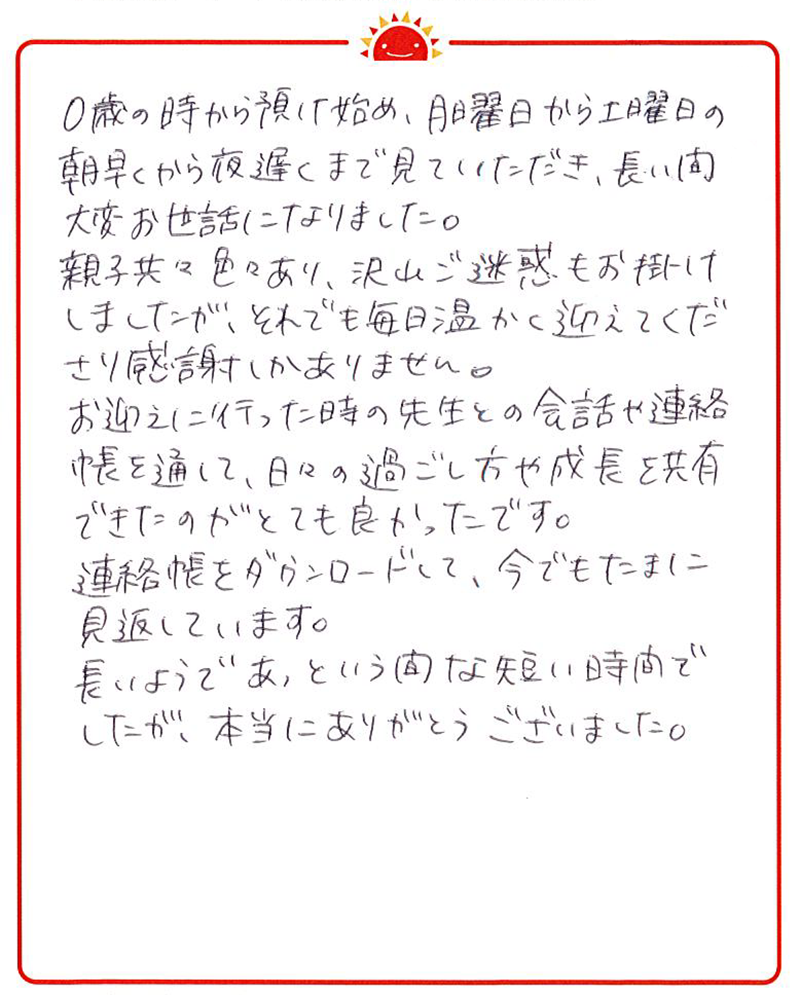 0歳の時から預け始め、月曜日から土曜日の
朝早くから夜遅くまで見ていただき、長い間
大変お世話になりました。
親子共々色々あり、沢山ご迷惑もお掛け
しましたが、それでも毎日温かく迎えてくだ
さり感謝しかありません。
お迎えに行った時の先生との会話や連絡
帳を通して、日々の過ごし方や成長を共有
できたのがとても良かったです。
連絡帳をダウンロードして、今でもたまに
見返しています。
長いようであっという間な短い時間で
したが、本当にありがとうございました。